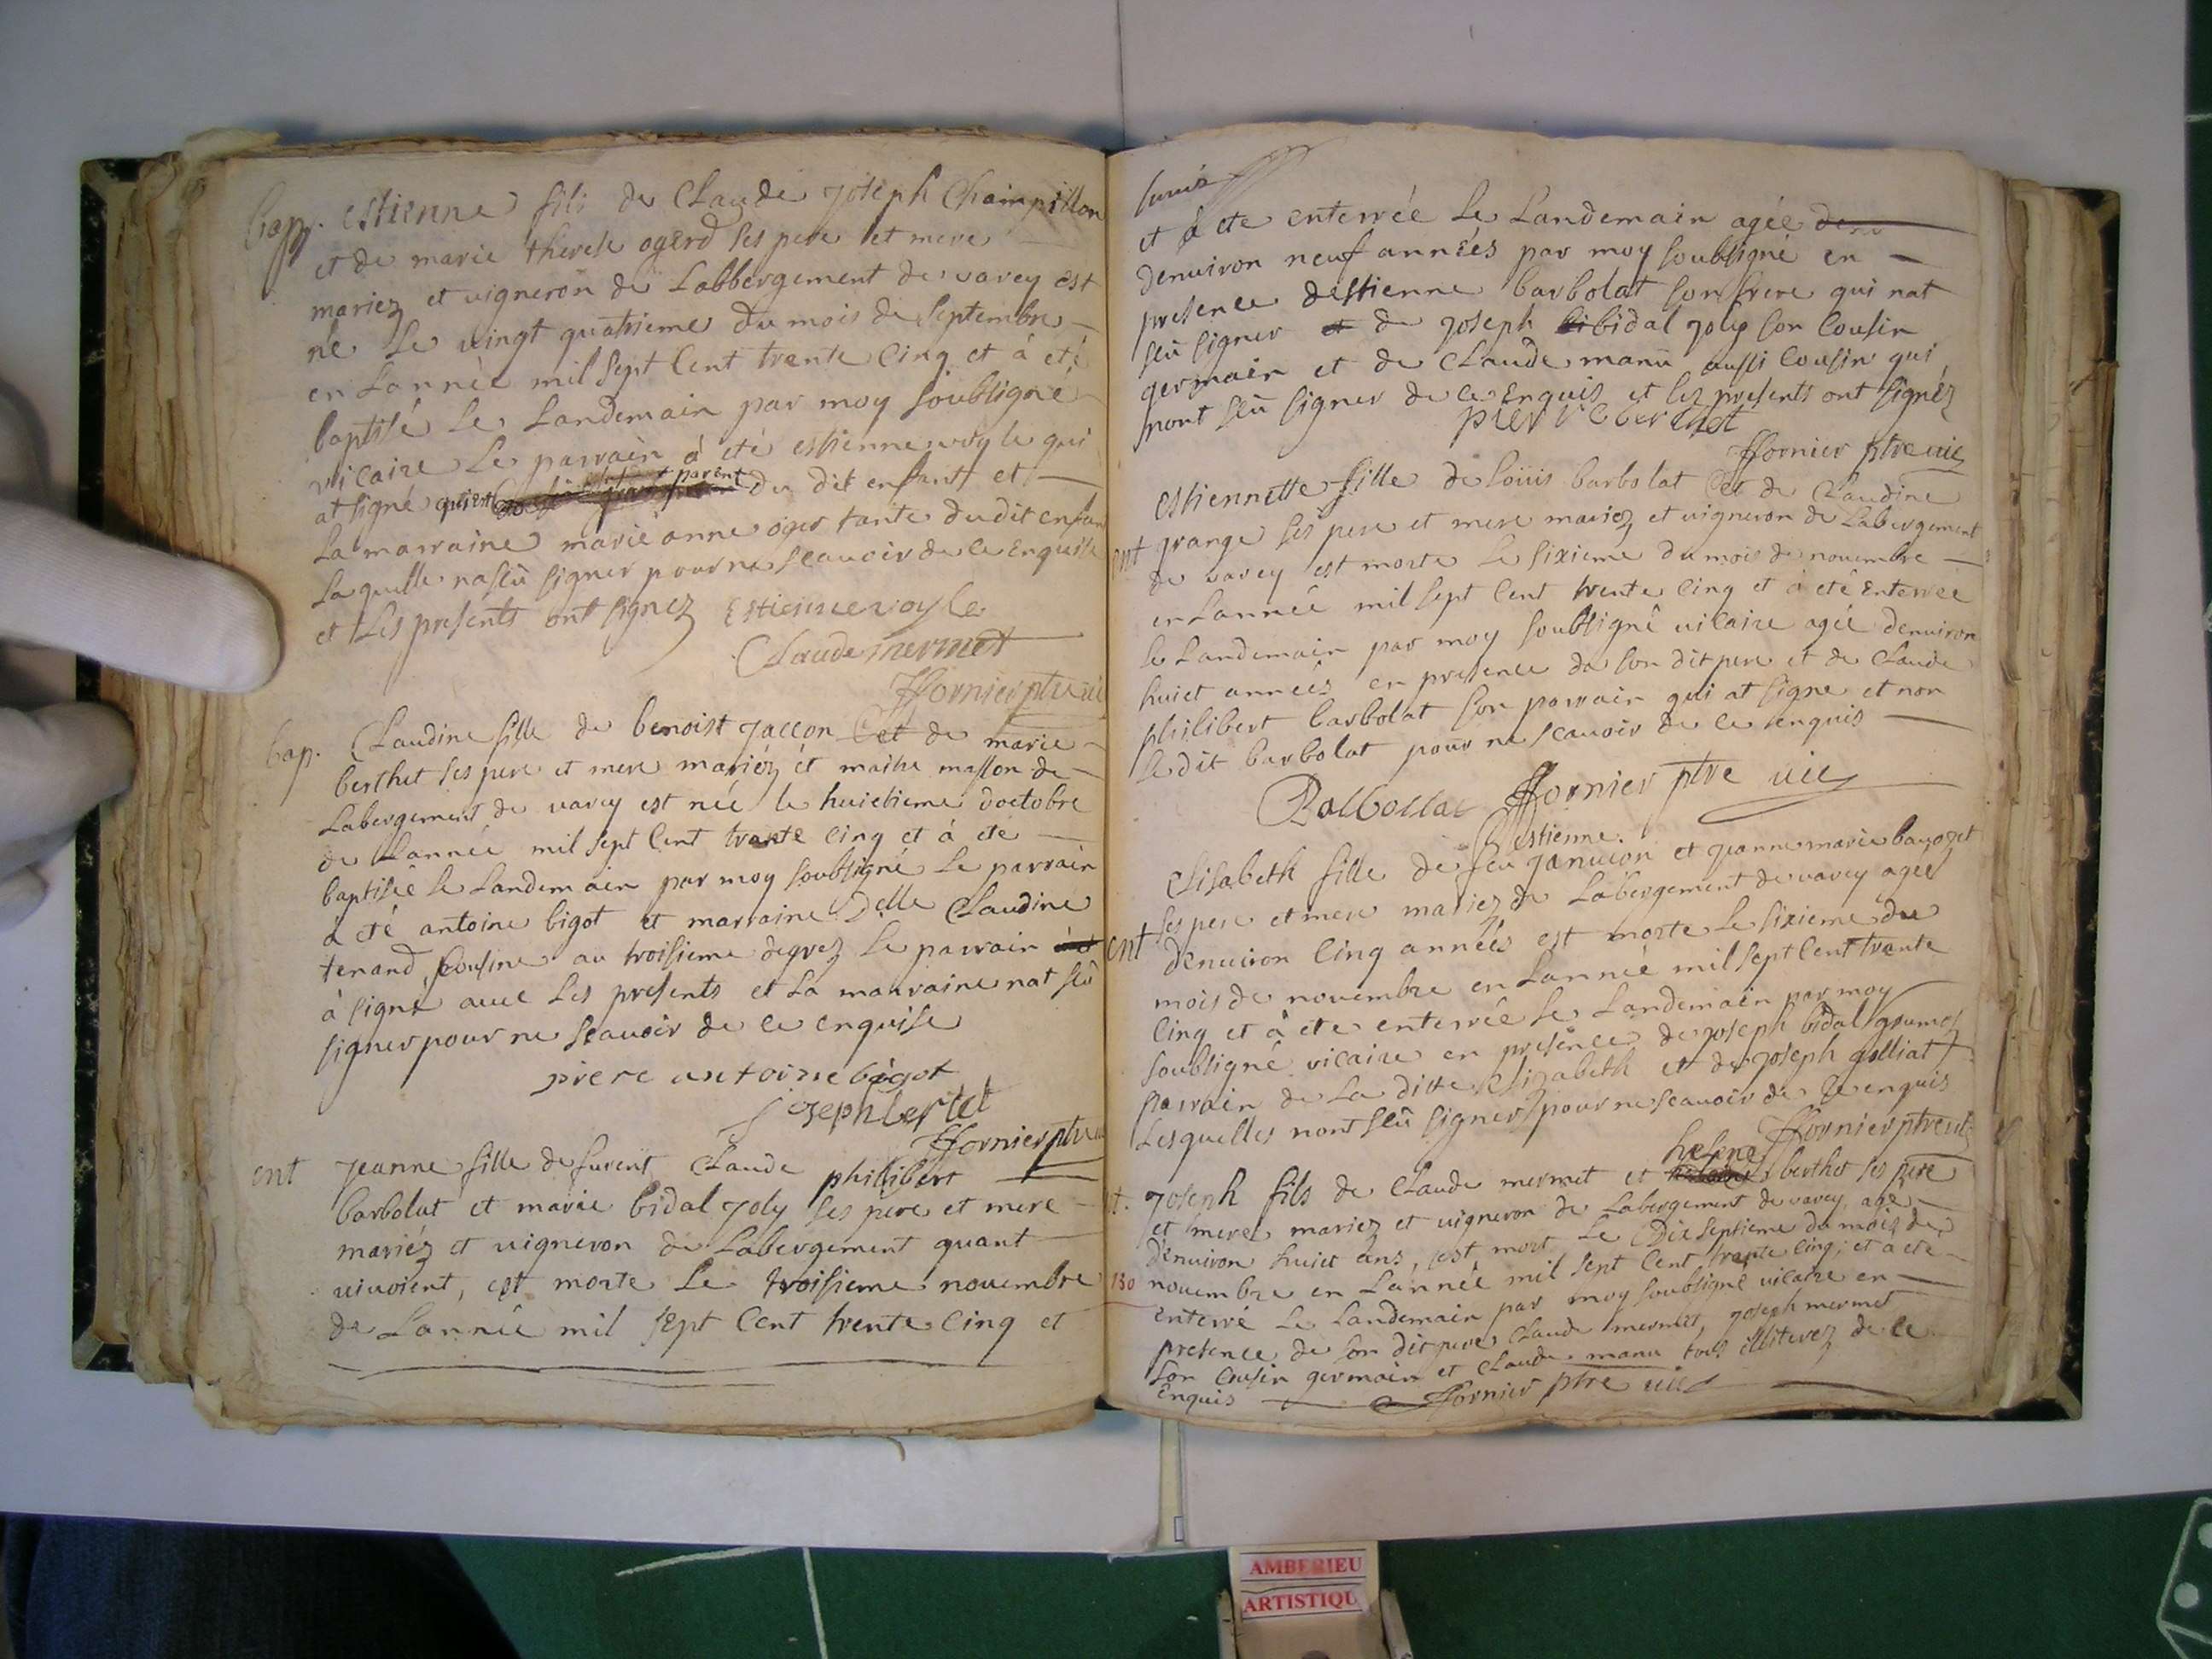 bap. estienne fils de Claude joseph Champillon
et de marie therese ogerd ses pere et mere
mariez et vigneron de Labbergement de varey est
né le vingt quatrieme du mois de septembre
en Lannée mil sept cent trente cinq et à eté
baptisé le Landemain par moy soubsigné
vicaire Le parrain à eté estienne voyle qui
at signé parent du dit enfant et
La marraine marie anne oger tante dudit enfan
Laquelle nasceu signer pour ne sçauoir de ce Enquise
et Les presents ont signez Estienne voyle
Claude mermet
ffornier ptre vic
bap. Claudine fille de benoist jaccon et de marie
berthet ses pere et mere mariéz et maitre masson de
Labergement de varey est née le huictieme doctobre
de Lannée mil sept cent trante cinq et à eté
baptisée le Landemain par moy soubsigné Le parrain
à eté antoine bigot et marraine Delle Claudine
tenand Cousine au troisieme degrez Le parrain
à signé auec Les presents et La marraine nat sceu
signer pour ne sçauoir de ce enquise
piere antoine bigot
joseph bertet
ffornier ptre
ent jeanne fille de furent Claude philibert
barbolat et marie bidal joly ses pere et mere
mariéz et vigneron de Labergement quant
viuoient, est morte le troisieme nouembre
de Lannée mil sept Cent trente cinq et
suivis
et à ete enterrée le Landemain agée
denuiron neuf années par moy soubsigné en
presence destienne barbolat son frere qui nat
sceu signer de joseph bidal joly son Cousin
germain et de Claude manu aussi Cousin qui
nont sceu signer de ce Enquis et les presents ont signéz
pierre berthet
ffornier ptre vic
ent
estiennette fille de loüis barbolat et de Claudine
grange ses pere et mere mariez et vigneron de Labergement
de varey est morte le sixieme du mois de nouembre
en Lannée mil sept Cent trente cinq et à eté Enterrée
le Landemain par moy soubsigné vicaire agée denuiron
huict années en presence de son dit pere et de Claude
philibert barbolat son parrain qui at signe et non
le dit barbolat pour ne scauoir de ce enquis
Balbollat ffornier ptre vic
estienne
ent
Elisabeth fille de feu januion et jeanne marie bauozet
ses pere et mere mariez de Labergement de varey agée
denuiron cinq années est morte le sixieme du
mois de nouembre en Lannée mil sept Cent trante
cinq et à ete enterrée le Landemain par moy
soubsigné vicaire en presence de joseph bidal goumoz
parrain de La ditte Elizabeth et de joseph galliat
Lesquelles nont sceu signer pour ne scauoir de ce enquis
ffornier ptre vic
helene
t. joseph fils de Claude mermet et berthet ses pere
et mere mariez et vigneron de Labergement de varey, age
denuiron huict ans, est mort Le Dix septieme du mois de
130 nouembre en Lannée mil sept Cent trante cinq; et à eté
enterré Le Landemain par moy soubsigné vicaire en
presence de son dit pere Claude mermet, joseph mermet
son Cousin germain et Claude manu tous illiterez de ce
Enquis ffornier ptre vic
AMBERIEU
ARTISTIQU